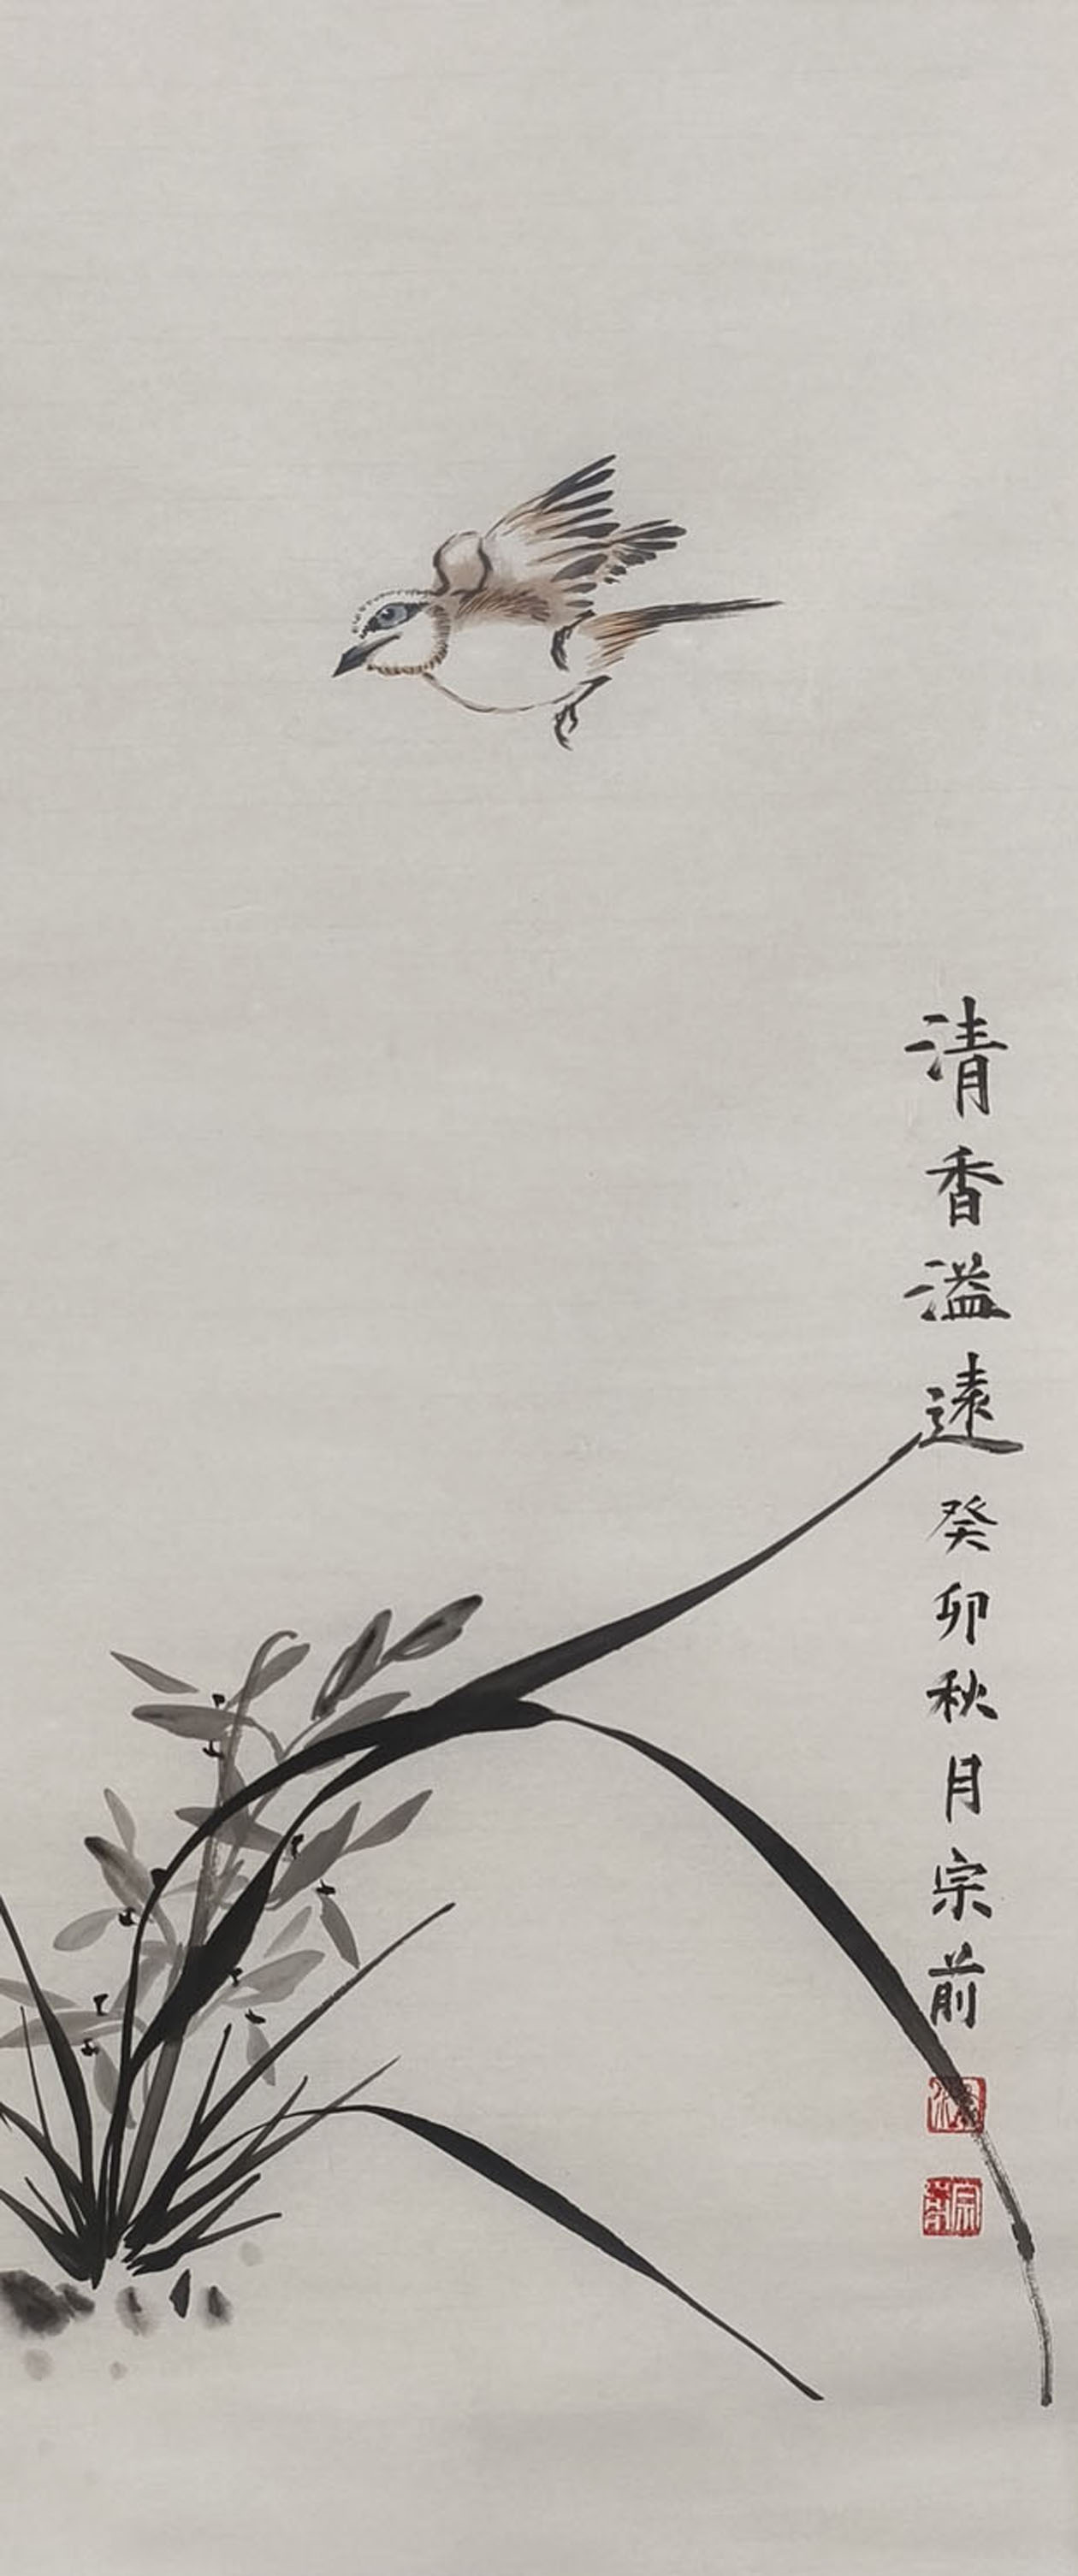 清香溢遠癸卯秋月宗前